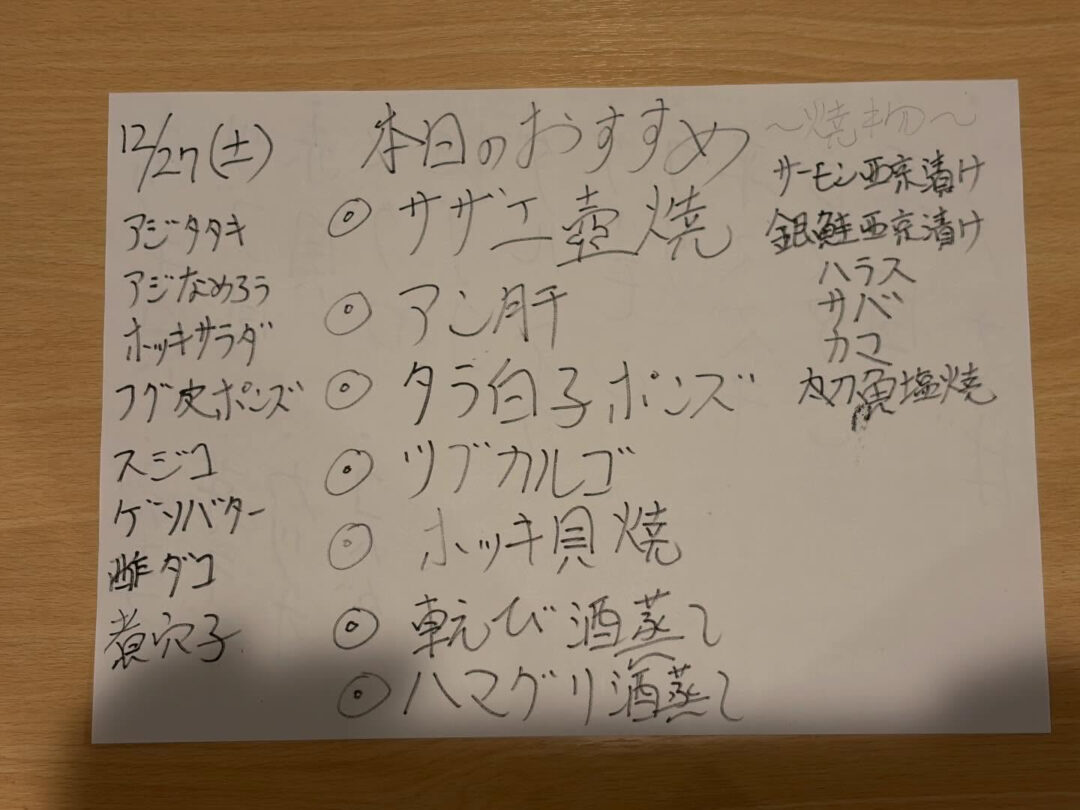 12/27(土)
アジタタキ
アジなめろう
ホッキサラダ
フグ皮ポンズ
スジコ
ゲソバター
酢ダコ
煮穴子
本日のおすすめ
◎ サザエ壺焼
◎ アン肝
◎ タラ白子ポンズ
◎ ツブカルゴ
◎ ホッキ貝焼
◎ 車えび酒蒸し
◎ ハマグリ酒蒸し
〜焼物〜
サーモン西京漬け
銀鮭西京漬け
ハラス
サバ
カマ
太刀魚塩焼